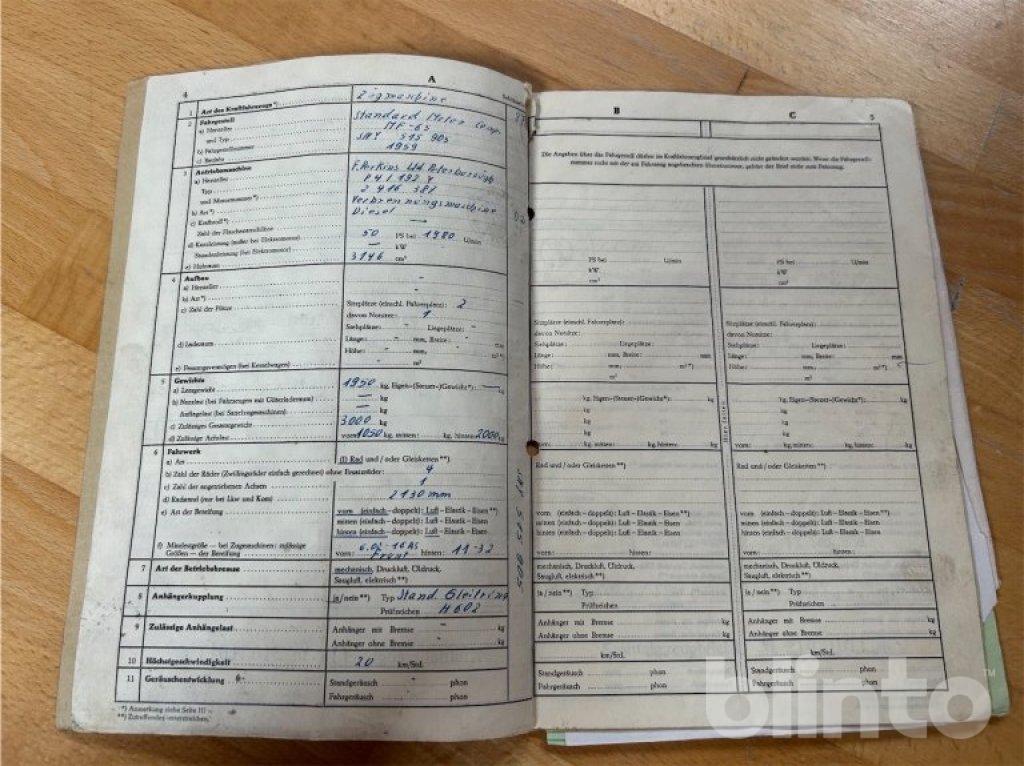 4
A
1 Art des Kraftfahrzeugs*) Zugmaschine
2 Fahrgestell
a) Hersteller Standard Motor Comp.
und Typ MF-65
b) Fahrgestellnummer SNY 515 905
c) Baujahr 1959
3 Antriebsmaschine
a) Hersteller F. Perkins Ltd Peterborough
Typ P 4 / 192 Y
und Motornummer*) 2 416 381
b) Art*) Verbrennungsmaschine
c) Kraftstoff*) Diesel
Zahl der Flaschenanschlüsse —
d) Nennleistung (außer bei Elektromotor) 50 PS bei 1980 U/min
Stundenleistung (bei Elektromotor) — kW
e) Hubraum 3146 cm³
4 Aufbau
a) Hersteller -
b) Art*) -
c) Zahl der Plätze Sitzplätze (einschl. Fahrerplatz): 2
davon Notsitze: 1
Stehplätze: - Liegeplätze: -
d) Laderaum Länge: - mm, Breite: - mm
Höhe: - mm, - m²*)
e) Fassungsvermögen (bei Kesselwagen) - m³
5 Gewichte
a) Leergewicht 1950 kg, Eigen-(Steuer-)Gewicht*): — kg
b) Nutzlast (bei Fahrzeugen mit Güterladeraum) — kg
Aufliegelast (bei Sattelzugmaschinen) — kg
c) Zulässiges Gesamtgewicht 3000 kg
d) Zulässige Achslast vorn: 1050 kg, mitten: kg, hinten: 2000 kg
6 Fahrwerk
a) Art (1) Rad und / oder Gleisketten **)
b) Zahl der Räder (Zwillingsräder einfach gerechnet) ohne Ersatzräder: 4
c) Zahl der angetriebenen Achsen 1
d) Radstand (nur bei Lkw und Kom) 2130 mm
e) Art der Bereifung vorn (einfach – doppelt): Luft – Elastik – Eisen **)
mitten (einfach – doppelt): Luft – Elastik – Eisen
hinten (einfach – doppelt): Luft – Elastik – Eisen
f) Mindestgröße — bei Zugmaschinen: zulässige
Größen — der Bereifung vorn: 6.00-16 AS Front hinten: 11-32
7 Art der Betriebsbremse mechanisch, Druckluft, Öldruck,
Saugluft, elektrisch **)
8 Anhängerkupplung ja / nein **) Typ Stand. Gleitring
Prüfzeichen M 602
9 Zulässige Anhängelast Anhänger mit Bremse - kg
Anhänger ohne Bremse - kg
10 Höchstgeschwindigkeit 20 km/Std.
11 Geräuschentwicklung Standgeräusch phon
Fahrgeräusch phon
*) Anmerkung siehe Seite III
**) Zutreffendes unterstreichen.
SNY 515 905
B
C
5
Die Angaben über das Fahrgestell dürfen im Kraftfahrzeugbrief grundsätzlich nicht geändert werden. Wenn die Fahrgestell-
nummer nicht mit der am Fahrzeug angebrachten übereinstimmt, gehört der Brief nicht zum Fahrzeug.
PS bei U/min PS bei U/min
kW kW
cm³ cm³
Sitzplätze (einschl. Fahrerplatz): Sitzplätze (einschl. Fahrerplatz):
davon Notsitze: davon Notsitze:
Stehplätze: Liegeplätze: Stehplätze: Liegeplätze:
Länge: mm, Breite: mm Länge: mm, Breite: mm
Höhe: mm, m²*) Höhe: mm, m²*)
m³ m³
kg, Eigen-(Steuer-)Gewicht*): kg kg, Eigen-(Steuer-)Gewicht*): kg
kg kg
kg kg
kg kg
vorn: kg, mitten: kg, hinten: kg vorn: kg, mitten: kg, hinten: kg
Rad und / oder Gleisketten **) Rad und / oder Gleisketten **)
vorn (einfach – doppelt): Luft – Elastik – Eisen **) vorn (einfach – doppelt): Luft – Elastik – Eisen **)
mitten (einfach – doppelt): Luft – Elastik – Eisen mitten (einfach – doppelt): Luft – Elastik – Eisen
hinten (einfach – doppelt): Luft – Elastik – Eisen hinten (einfach – doppelt): Luft – Elastik – Eisen
vorn: hinten: vorn: hinten:
mechanisch, Druckluft, Öldruck, mechanisch, Druckluft, Öldruck,
Saugluft, elektrisch **) Saugluft, elektrisch **)
ja / nein **) Typ ja / nein **) Typ
Prüfzeichen Prüfzeichen
Anhänger mit Bremse kg Anhänger mit Bremse kg
Anhänger ohne Bremse kg Anhänger ohne Bremse kg
km/Std. km/Std.
Standgeräusch phon Standgeräusch phon
Fahrgeräusch phon Fahrgeräusch phon
blinto™